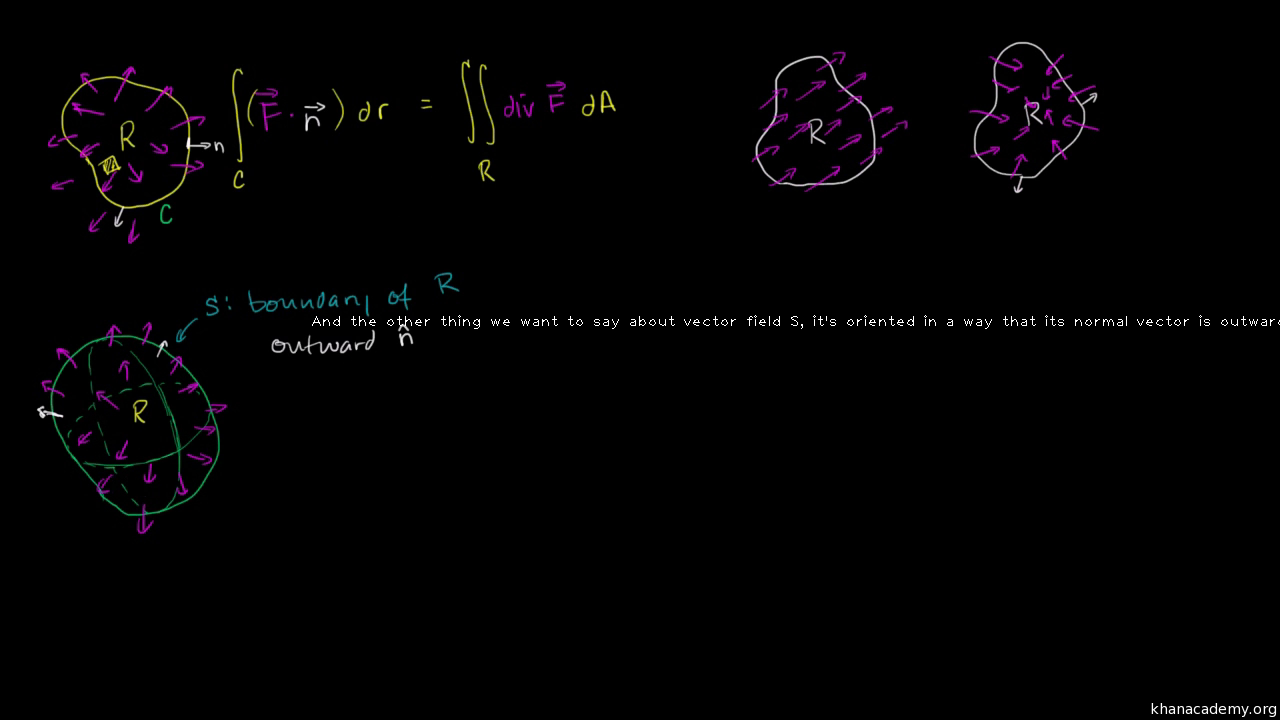 R
n
C
∫_C (F⃗ · n⃗) dr = ∬_R div F⃗ dA
R
R
S: boundary of R
And the other thing we want to say about vector field S, it's oriented in a way that its normal vector is outwar
outward n̂
R
khanacademy.org